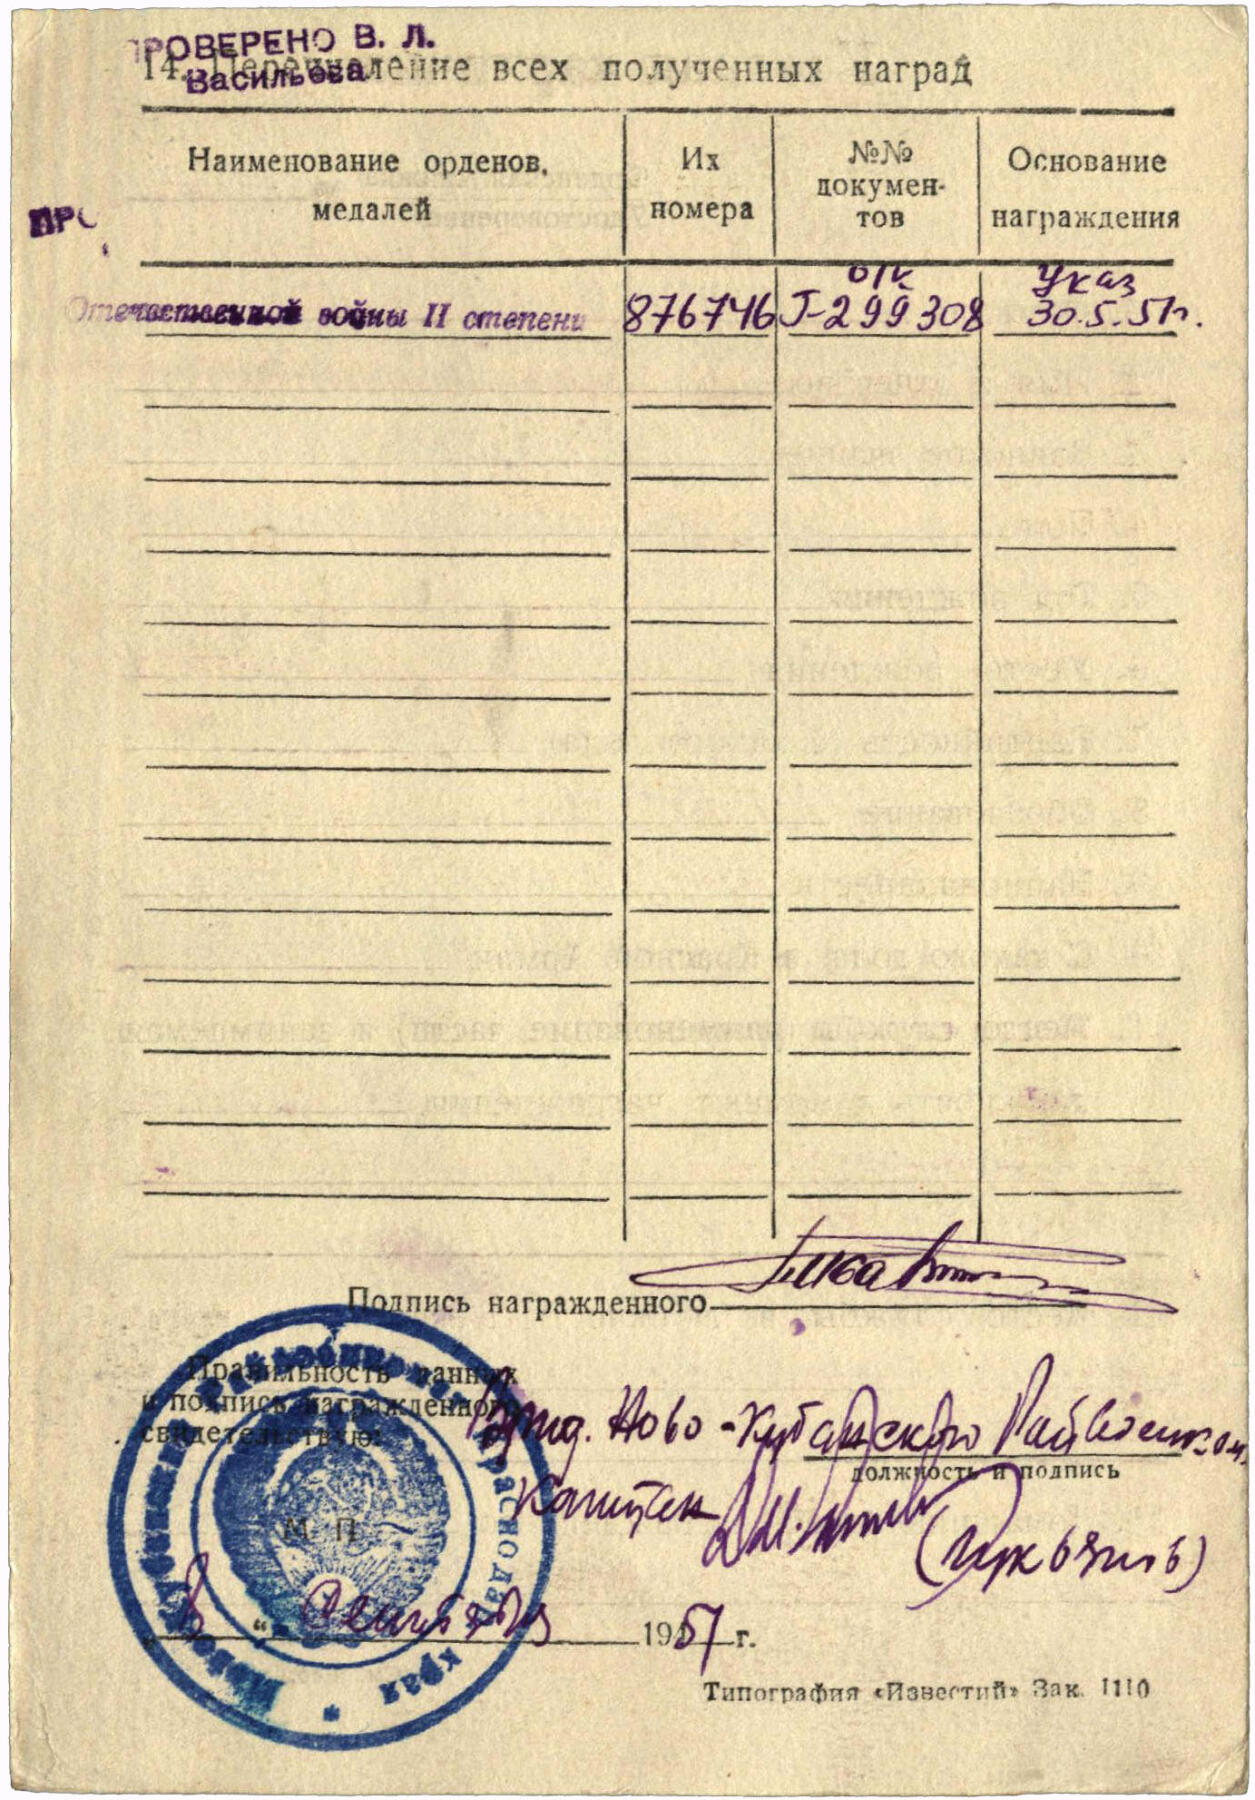 ПРОВЕРЕНО В. Л.
Васильева
14. Перечисление всех полученных наград
Наименование орденов, медалей
Их номера
№№ докумен-
тов
Основание награждения
ПРО
Отечественной войны II степени 876746 Г-299308 Указ
30.5.51г.
Подпись награжденного
Правильность данных
и подпись награжденного
свидетельствую:
Врид. Ново-Кубанского Райвоенком
должность и подпись
Капитан
М. П.
8 " Сентября 1951 г.
Новокубанский Райвоенкомат Краснодар края
Типография «Известий» Зак. 1110